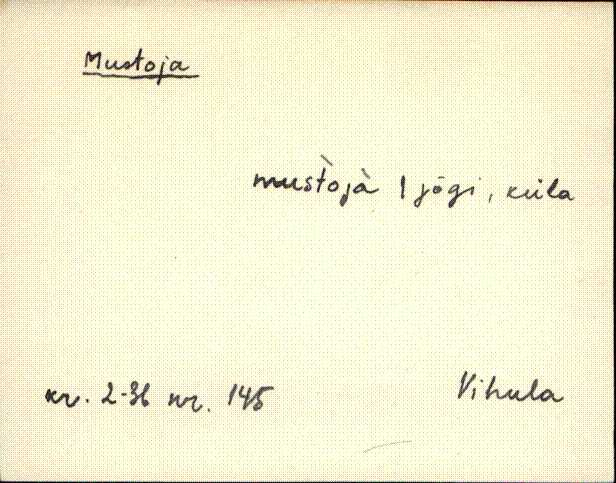 Mustoja
mustòjà | jõgi, küla
kr. 2-36 nr. 145
Vihula